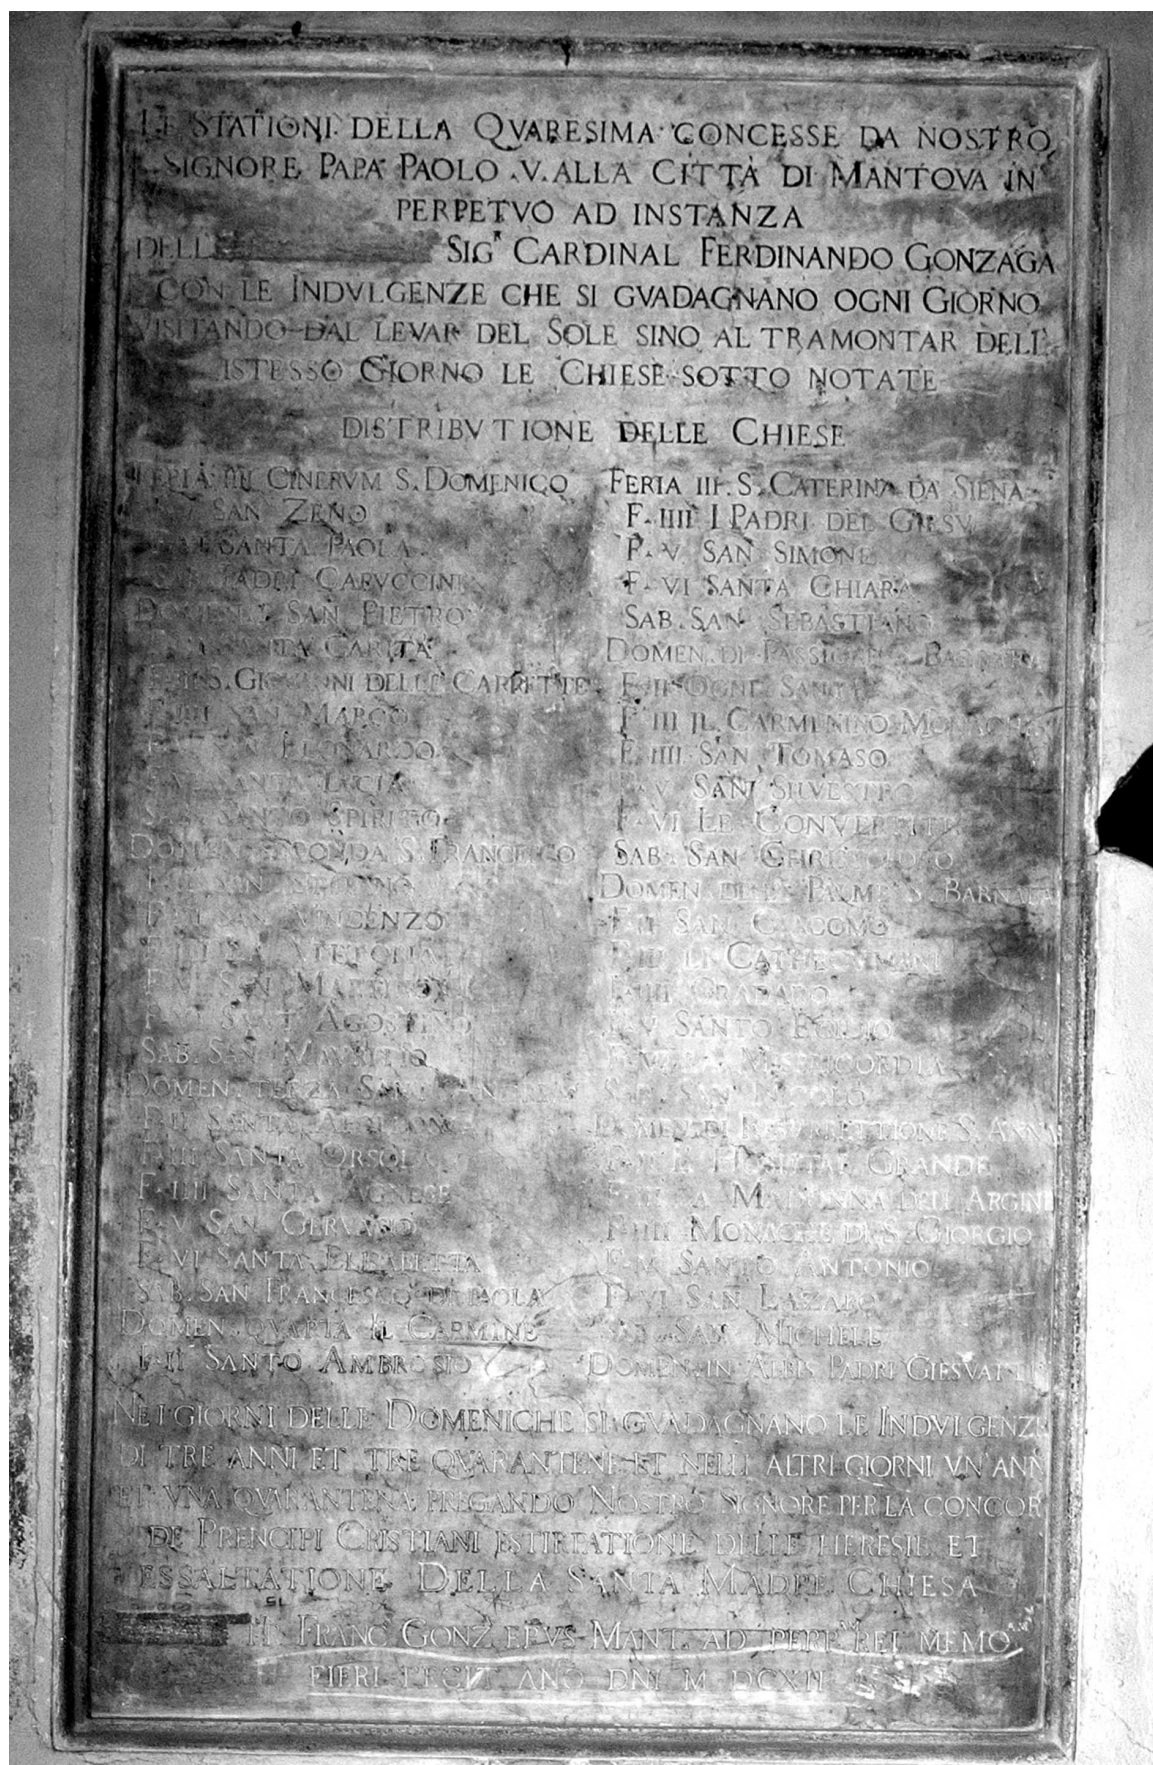 LE STATIONI DELLA QVARESIMA CONCESSE DA NOSTRO
SIGNORE PAPA PAOLO .V. ALLA CITTÀ DI MANTOVA IN
PERPETVO AD INSTANZA
DELL SIG.R CARDINAL FERDINANDO GONZAGA
CON LE INDVLGENZE CHE SI GVADAGNANO OGNI GIORNO
VISITANDO DAL LEVAR DEL SOLE SINO AL TRAMONTAR DELL'
ISTESSO GIORNO LE CHIESE SOTTO NOTATE
DISTRIBVTIONE DELLE CHIESE
FERIA IIII CINERVM S. DOMENICO
F. V SAN ZENO
F. VI SANTA PAOLA
SAB. PADRI CAPVCCINI
DOMEN. I SAN PIETRO
SANTA CARITA
F. III S. GIOVANNI DELLE CARRETTE
F. IIII SAN MARCO
SAN LEONARDO
F. VI SANTA LUCIA
SAB. SANTO SPIRITO
DOMEN. SECONDA S. FRANCESCO
F. II SAN STEFANO
F. III SAN VINCENZO
F. IIII LA VITTORIA
F. V SAN MARTINO
F. VI SANT AGOSTINO
SAB. SAN MAVRITIO
DOMEN. TERZA SANT ANDREA
F. II SANTA APOLLONIA
F. III SANTA ORSOLA
F. IIII SANTA AGNESE
F. V SAN GERVASO
F. VI SANTA ELISABETTA
SAB. SAN FRANCESCO DI PAOLA
DOMEN. QVARTA IL CARMINE
F. II SANTO AMBROSIO
FERIA III. S. CATERINA DA SIENA
F. IIII I PADRI DEL GIESV
F. V SAN SIMONE
F. VI SANTA CHIARA
SAB. SAN SEBASTIANO
DOMEN. DI PASSIONE S. BARBARA
F. II OGNI SANTI
F. III IL CARMININO
F. IIII SAN TOMASO
F. V SAN SILVESTRO
F. VI LE CONVERTITE
SAB. SAN CHRISTOFORO
DOMEN. DELLE PALME S. BARNABA
F. II SAN GIACOMO
F. III LI CATHECVMINI
F. IIII GRADARO
F. V SANTO EGIDIO
F. VI LA MISERICORDIA
SAB. SAN NICOLO
DOMEN. DI RESVRRETTIONE S. ANNA
F. II L HOSPITAL GRANDE
F. III LA MADONNA DELL ARGINE
F. IIII MONACHE DI S. GIORGIO
F. V SANTO ANTONIO
F. VI SAN LAZARO
SAB. SAN MICHELE
DOMEN. IN ALBIS PADRI GIESVATI
NEI GIORNI DELLE DOMENICHE SI GVADAGNANO LE INDVLGENZE
DI TRE ANNI ET TRE QVARANTENE ET NELLI ALTRI GIORNI VN ANN
ET VNA QVARANTENA PREGANDO NOSTRO SIGNORE PER LA CONCOR
DE PRENCIPI CRISTIANI ESTIRPATIONE DELLE HERESIE ET
ESSALTATIONE DELLA SANTA MADRE CHIESA
FRANC GONZ EPVS MANT. AD PERP REI MEMO
FIERI FECIT ANO DNI M DCXII